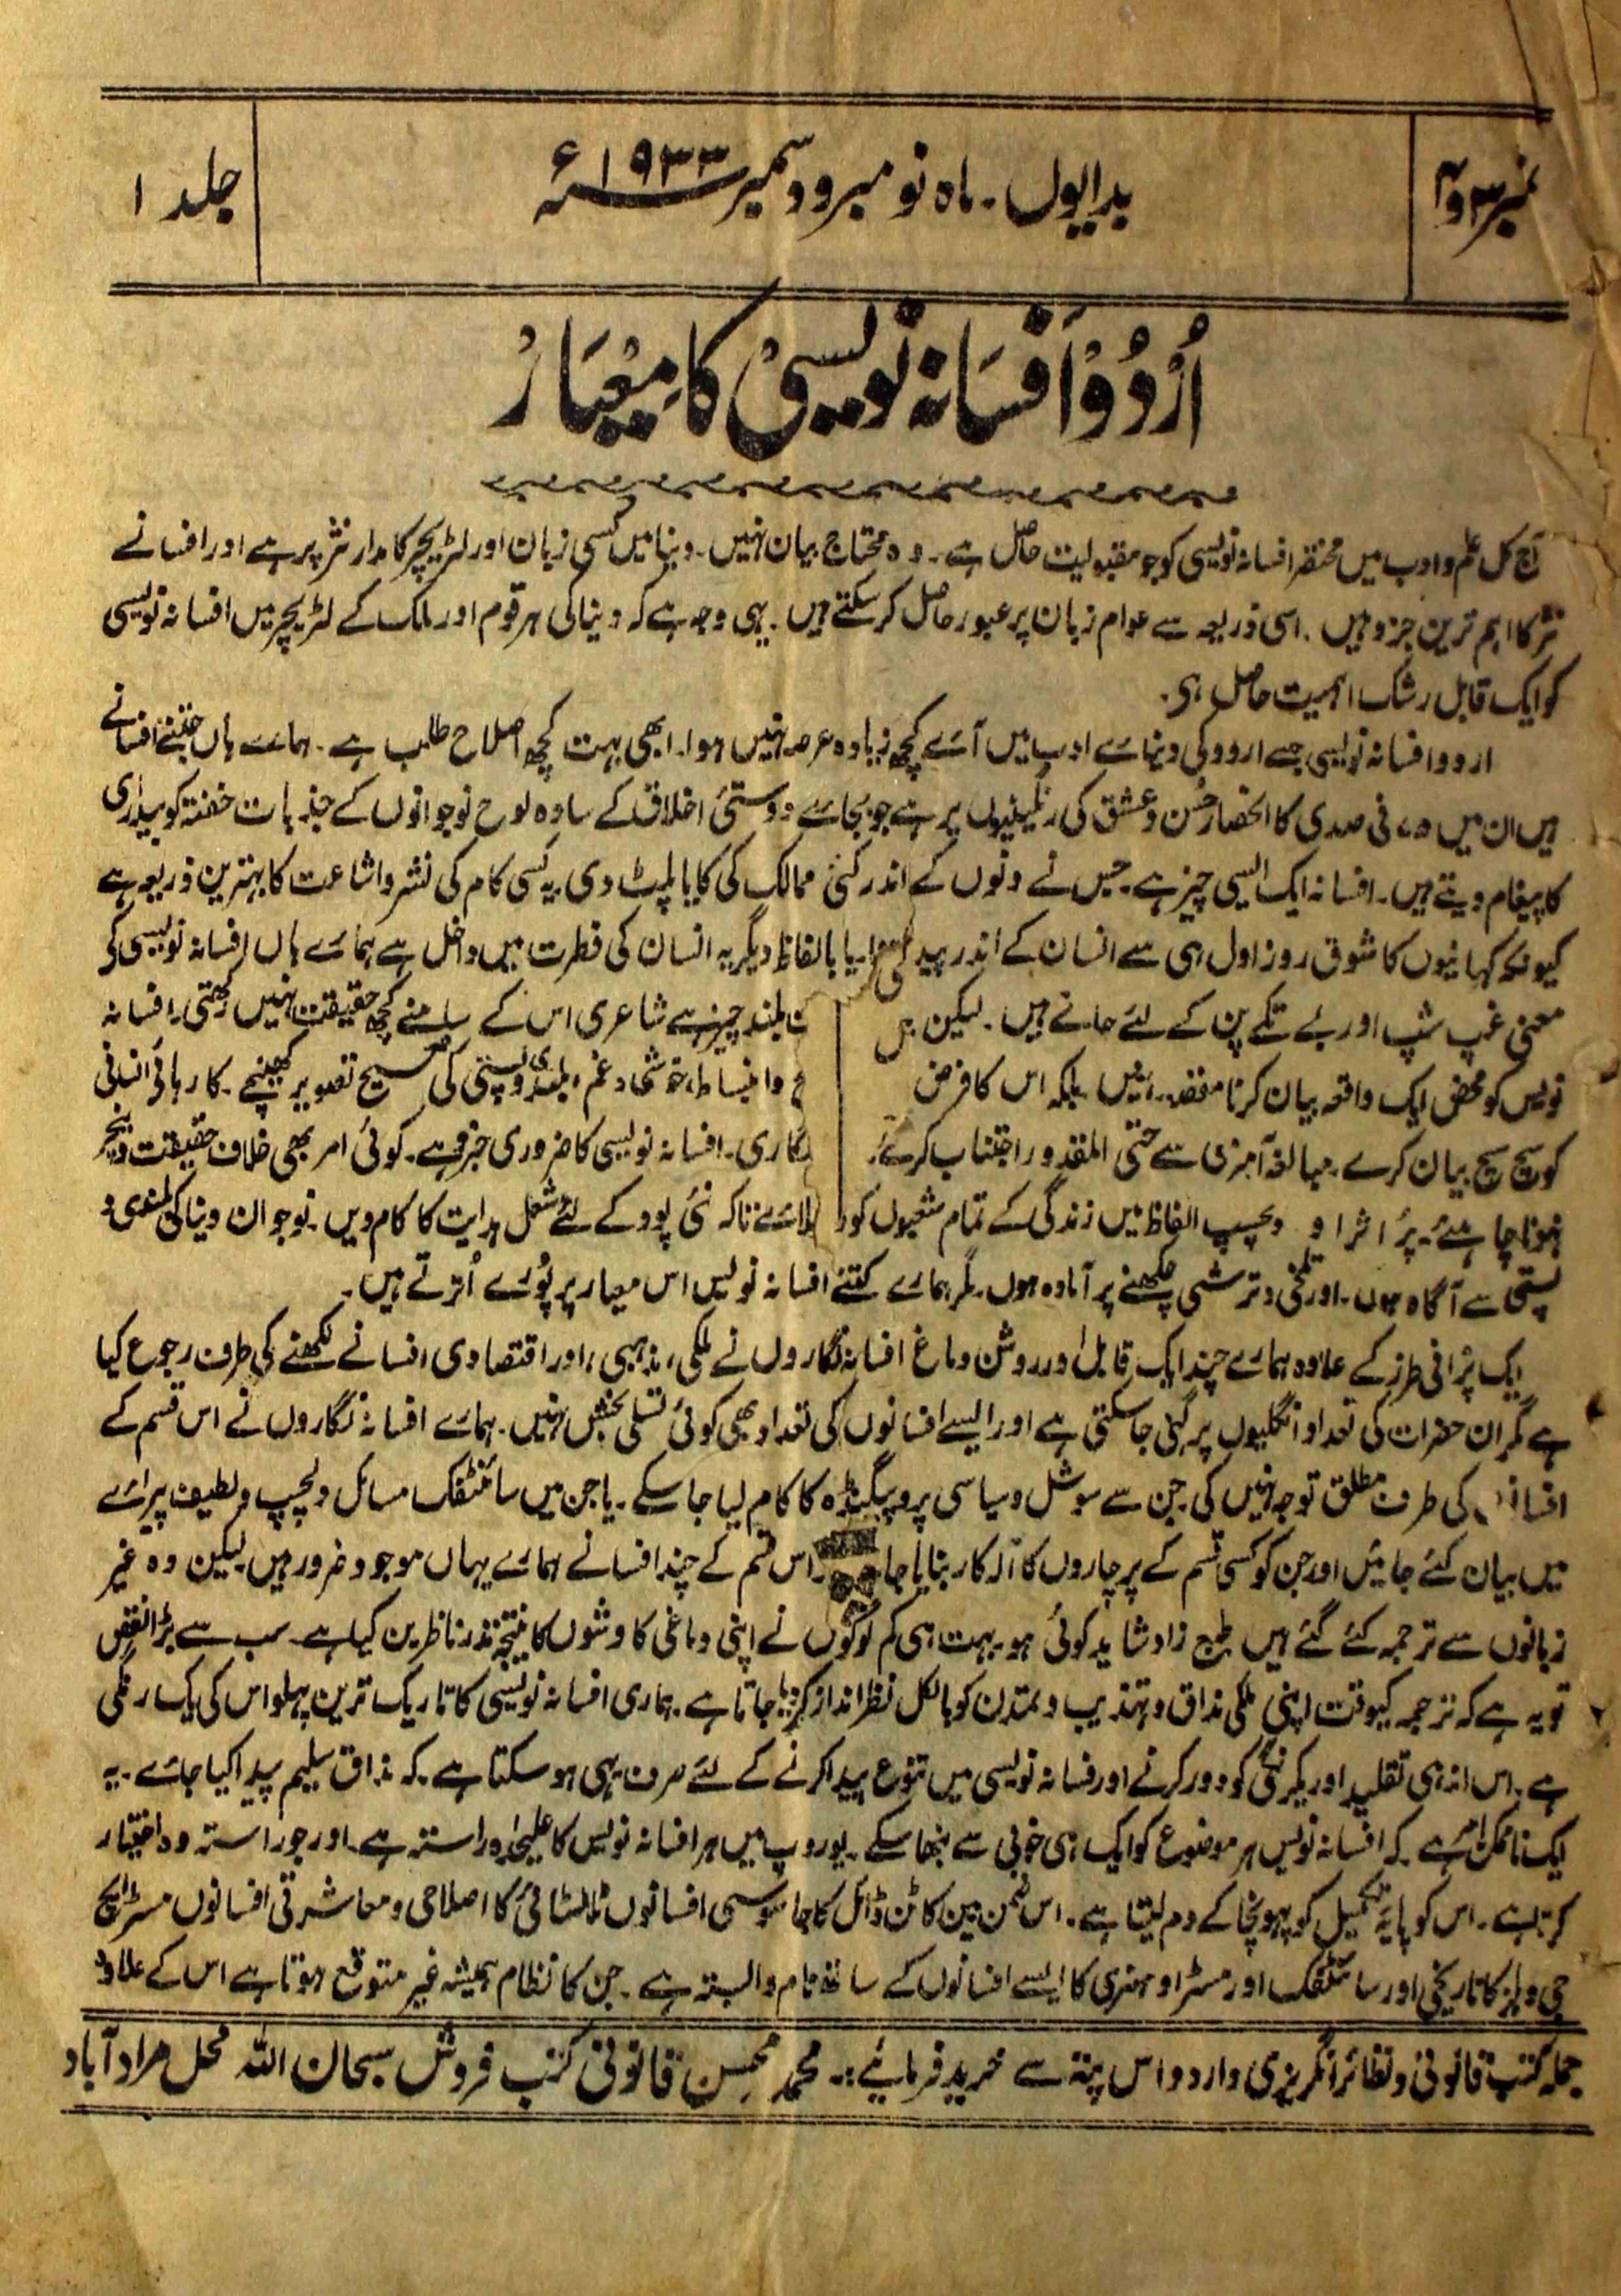 نمبر ۳ و ۴
بدایوں ۔ ماہ نومبر و دسمبر ۱۹۳۳ء
جلد ۱
اُرْدُوْ اَفسَانہ نَویسیْ کا مِعْیَارْ
آج کل علم و ادب میں مختصر افسانہ نویسی کو جو مقبولیت حاصل ہے ۔ وہ محتاج بیان نہیں ۔ دنیا میں کسی زبان اور لٹریچر کا مدار نثر پر ہے اور افسانے
نثر کا اہم ترین جزو ہیں ۔ اسی ذریعہ سے عوام زبان پر عبور حاصل کر سکتے ہیں ۔ یہی وجہ ہے کہ دنیا کی ہر قوم اور ملک کے لٹریچر میں افسانہ نویسی
کو ایک قابل رشک اہمیت حاصل ہی ۔
اردو افسانہ نویسی جسے اردو کی دنیائے ادب میں آئے کچھ زیادہ عرصہ نہیں ہوا ۔ ابھی بہت کچھ اصلاح طلب ہے ۔ ہمارے ہاں جتنے افسانے
ہیں ان میں ۷۵ فی صدی کا انحصار حُسن و عشق کی رنگینیوں پر ہے جو بجائے درستئ اخلاق کے سادہ لوح نوجوانوں کے جذبات خفتہ کو بیداری
کا پیغام دیتے ہیں ۔ افسانہ ایک ایسی چیز ہے ۔ جس نے دنوں کے اندر کئی ممالک کی کایا پلٹ دی ۔ یہ کسی کام کی نشر و اشاعت کا بہترین ذریعہ ہے
کیونکہ کہانیوں کا شوق روز اول ہی سے انسان کے اندر پید ا یا بالفاظ دیگر یہ انسان کی فطرت میں داخل ہے ہمارے ہاں افسانہ نویسی کی
معنی غپ شپ اور بے تکے پن کے لئے جاتے ہیں ۔ لیکن بلند چیز ہے شاعری اس کے سامنے کچھ حقیقت نہیں رکھتی ۔ افسانہ
نویس کو محض ایک واقعہ بیان کرنا مقصد نہیں ۔ بلکہ اس کا فرض و انبساط ، خوشی و غم ، بلندی و پستی کی صحیح تصویر کھینچے ۔ کارہائے انسانی
کو سچ سچ بیان کرے ۔ مبالغہ آمیزی سے حتی المقدور اجتناب کرے نگاری ۔ افسانہ نویسی کا ضروری جزو ہے ۔ کوئی امر بھی خلاف حقیقت و نیچر
نہ ہونا چاہئے ۔ پُر اثر او دلچسپ الفاظ میں زندگی کے تمام شعبوں کو لائے تاکہ نئی پود کے لئے مشعل ہدایت کا کام دیں ۔ نوجوان دنیا کی بلندی و
پستی سے آگاہ ہوں ۔ اور تلخی و ترشی چکھنے پر آمادہ ہوں ۔ مگر ہمارے کتنے افسانہ نویس اس معیار پر پُورے اُترتے ہیں ۔
ایک پُرانی طرز کے علاوہ ہمارے چند ایک قابل اور روشن دماغ افسانہ نگاروں نے ملکی ، مذہبی ، اور اقتصادی افسانے لکھنے کی طرف رجوع کیا
ہے مگر ان حضرات کی تعداد انگلیوں پر گنی جا سکتی ہے اور ایسے افسانوں کی تعداد بھی کوئی تسلی بخش نہیں ۔ ہمارے افسانہ نگاروں نے اس قسم کے
افسانوں کی طرف مطلق توجہ نہیں کی جن سے سوشل و سیاسی پروپیگنڈہ کا کام لیا جا سکے ۔ یا جن میں سائنٹفک مسائل دلچسپ و لطیف پیرائے
میں بیان کئے جائیں اور جن کو کسی قسم کے پرچاروں کا آلہ کار بنایا جا ۔ اس قسم کے چند افسانے ہمارے یہاں موجود ضرور ہیں لیکن وہ غیر
زبانوں سے ترجمہ کئے گئے ہیں طبع زاد شاید کوئی ہو ۔ بہت ہی کم لوگوں نے اپنی دماغی کاوشوں کا نتیجہ نذر ناظرین کیا ہے ۔ سب سے بڑا نقص
تو یہ ہے کہ ترجمہ کیوقت اپنی ملکی مذاق و تہذیب و تمدن کو بالکل نظر انداز کر دیا جاتا ہے ۔ ہماری افسانہ نویسی کا تاریک ترین پہلو اس کی یک رنگی
ہے ۔ اس اندہی تقلید اور یکرنگی کو دور کرنے اور فسانہ نویسی میں تنوع پیدا کرنے کے لئے صرف یہی ہو سکتا ہے ۔ کہ مذاق سلیم پیدا کیا جائے ۔ یہ
ایک ناممکن امر ہے ۔ کہ افسانہ نویس ہر موضوع کو ایک ہی خوبی سے نبھا سکے ۔ یوروپ میں ہر افسانہ نویس کا علیحدہ راستہ ہے ۔ اور جو راستہ وہ اختیار
کرتا ہے ۔ اس کو پایۂ تکمیل کو پہونچا کے دم لیتا ہے ۔ اس ضمن میں کانن ڈائل کا جاسوسی افسانوں ٹالسٹائی کا اصلاحی و معاشرتی افسانوں مسٹر ایچ
جی ویلز کا تاریخی اور سائنٹفک اور مسٹر او ہنری کا ایسے افسانوں کے ساتھ نام وابستہ ہے ۔ جن کا نظام ہمیشہ غیر متوقع ہوتا ہے اس کے علاوہ
جملہ کتب قانونی و نظائر انگریزی و اردو اس پتہ سے خرید فرمائیے :۔ محمد محسن قانونی کتب فروش سبحان اللہ محل مراد آباد